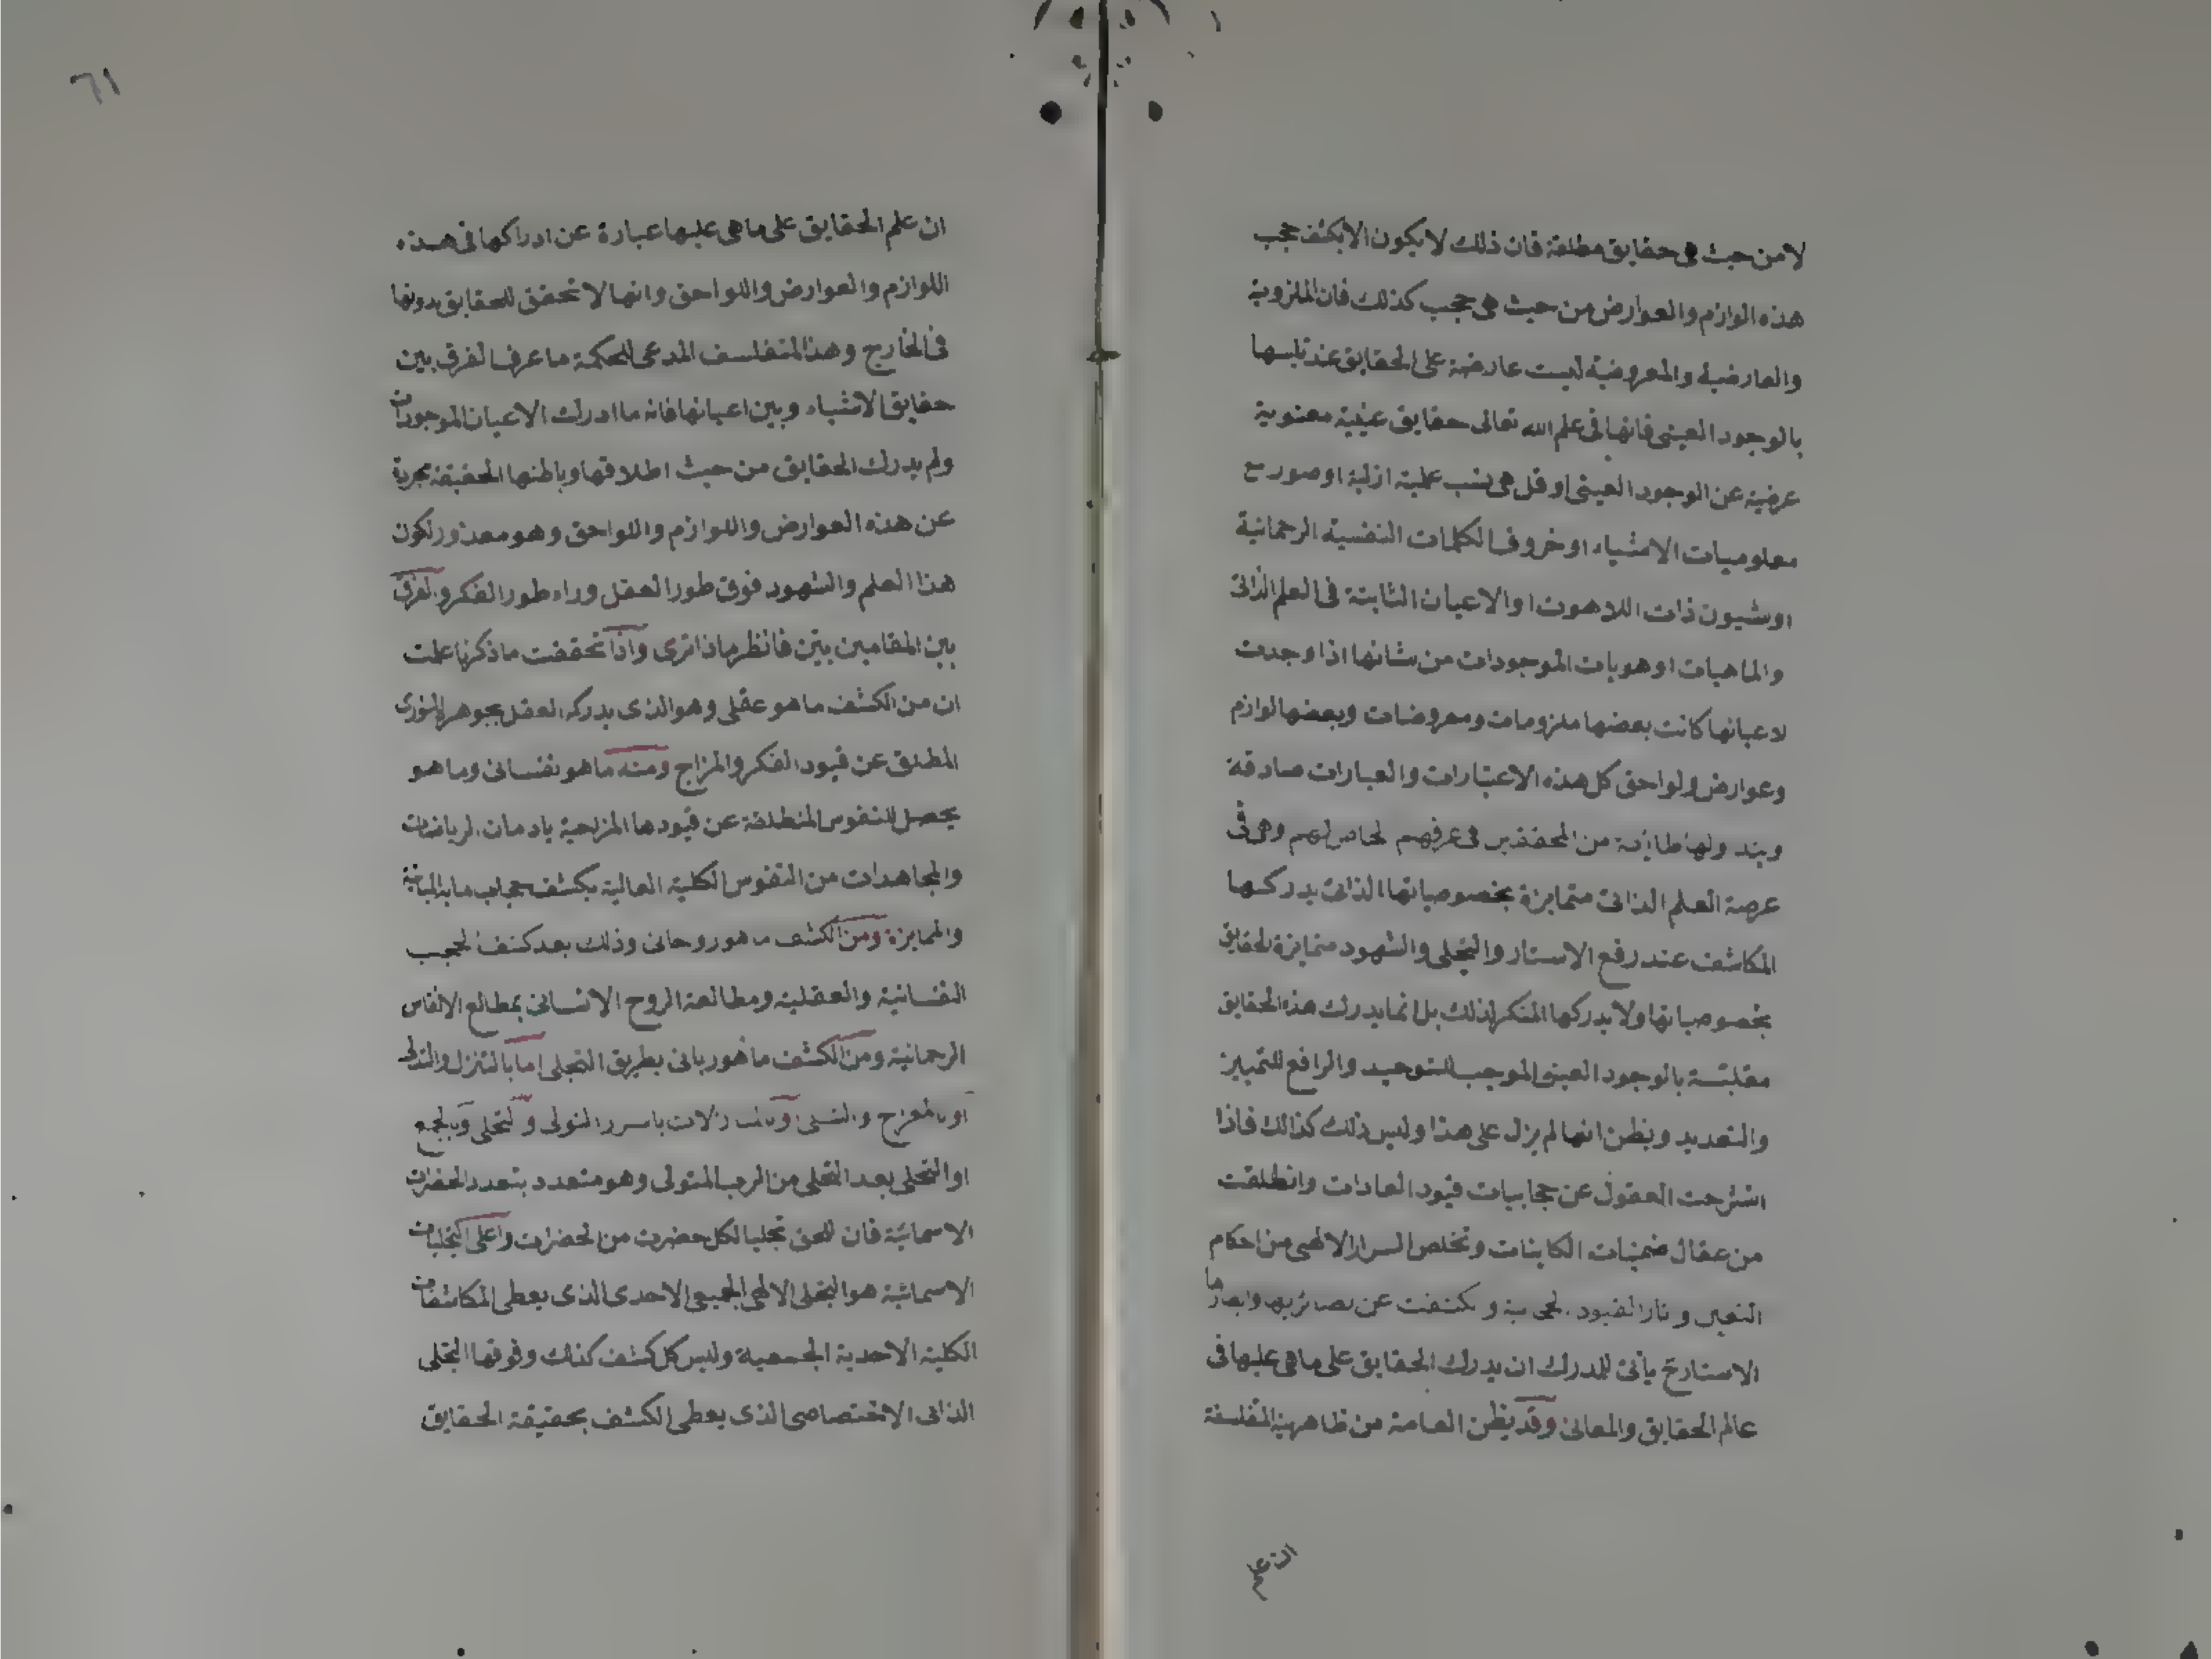 لا من حيث هى حقايق مطلقة فان ذلك لا يكون الا بكشف حجب
هذه الوازم والعوارض من حيث هى حجب كذلك فان الملزومية
والعارضية والمعروضية ليست عارضة على الحقايق عند تلبسها
بالوجود العينى فانها فى علم الله تعالى حقايق غيبية معنوية
عرضية عن الوجود العينى او قل هى نسب علمية ازلية او صور
معلوميات الاشياء او حروف الكلمات النفسية الرحمانية
او شيون ذات اللاهوت او الاعيان الثابتة فى العلم الذاتى
والماهيات او هويات الموجودات من شانها اذا وجدت
لاعيانها كانت بعضها ملزومات ومعروضات وبعضها لوازم
وعوارض ولواحق كل هذه الاعتبارات والعبارات صادقة
من المحققين فى عرفهم وهى فى
عرصة العلم الذاتى متمايزة بخصوصياتها الذاتى يدركها
المكاشف عند رفع الاستار والتجلى والشهود متمايزة الحقايق
بخصوصياتها ولا يدركها المنكر لذلك بل انما يدرك هذه الحقايق
متلبسة بالوجود العينى الموجب للتوحيد والرافع للتمييز
والتعديد ويظن انها لم يزل على هذا وليس ذلك كذلك فاذا
العقول عن حجابيات قيود العادات وانطلقت
من عقال ضمنيات الكاينات وتخلص السر الالهى من احكام
القيود عن وابصارها
الاستار ح يأتى للمدرك ان يدرك الحقايق على ما هى عليها فى
عالم الحقايق والمعانى وقد يظن العامة من ظاهرية الفلسفة
٦١
ان علم الحقايق على ما هى عليها عبارة عن ادراكها فى هذه
اللوازم والعوارض واللواحق وانها لا تحقق للحقايق بدونها
فى الخارج وهذا المتفلسف المدعى للحكمة ما عرف الفرق بين
حقايق الاشياء وبين اعيانها فانه ما ادرك الاعيان الموجودات
ولم يدرك الحقايق من حيث اطلاقها وباطنها الحقيقة مجردة
عن هذه العوارض واللوازم واللواحق وهو معذور لكون
هذا العلم والشهود فوق طور العقل وراء طور الفكر والفرق
بين المقامين بيّن فانظر ماذا ترى واذا تحققت ما ذكرنا علمت
ان من الكشف ما هو عقلى وهو الذى يدركه العقل بجوهره النورى
المطلق عن قيود الفكر والمزاج ومنه ما هو نفسانى وما هو
يحصل للنفوس المنطلقة عن قيودها المزاجية بادمان الرياضات
والمجاهدات من النفوس الكلية العالية بكشف حجاب ما به المباينة
والممايزة ومن الكشف ما هو روحانى وذلك بعد كشف الحجب
النفسانية والعقلية ومطالعة الروح الانسانى بمطالع الانفاس
الرحمانية ومن الكشف ما هو ربانى بطريق التجلى اما بالتنزل والتدلى
او بالمعراج التولى والتحلى وبالجمع
او التحلى بعد التخلى من الرب المتولى وهو متعدد بتعدد الحضرات
الاسمائية فان للحق تجليا لكل حضرت من الحضرات واعلى التجليات
الاسمائية هو التجلى الالهى الجمعى الاحدى الذى يعطى المكاشفات
الكلية الاحدية الجمعية وليس كل كشف كذلك وفوقها التجلى
الذاتى الاختصاصى الذى يعطى الكشف بحقيقة الحقايق